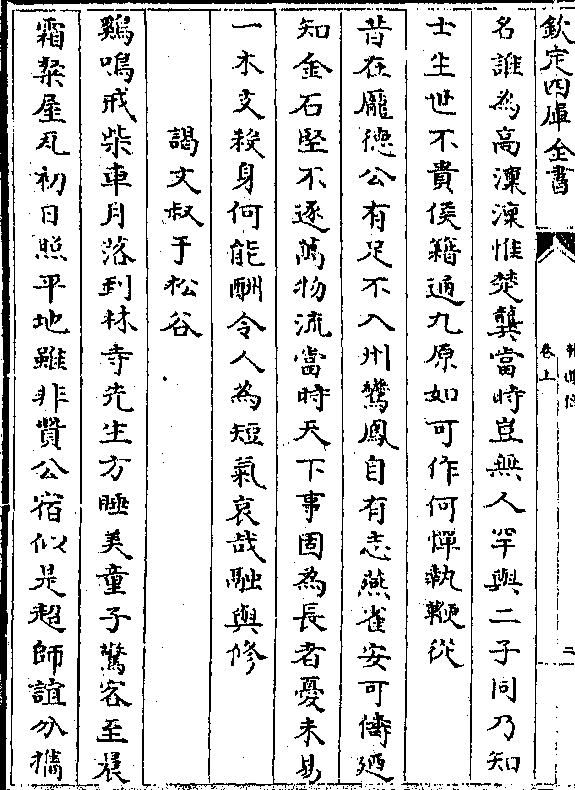 欽定四庫全書
卷上
二
名誰為高潔潔惟楚龔當時豈無人罕與二子同乃知
士生世不貴侯籍通九原如可作何憚執鞭從
昔在龐德公有足不入州鸞鳳自有志燕雀安可儔廼
知金石堅不逐萬物流當時天下事固為長者憂未易
一木支殺身何能酬令人為短氣哀哉融與修
謁文叔于松谷
鷄鳴戒柴車月落到林寺先生方睡美童子驚客至晨
霜粲屋瓦初日照平地雖非贊公宿似是超師誼分攜